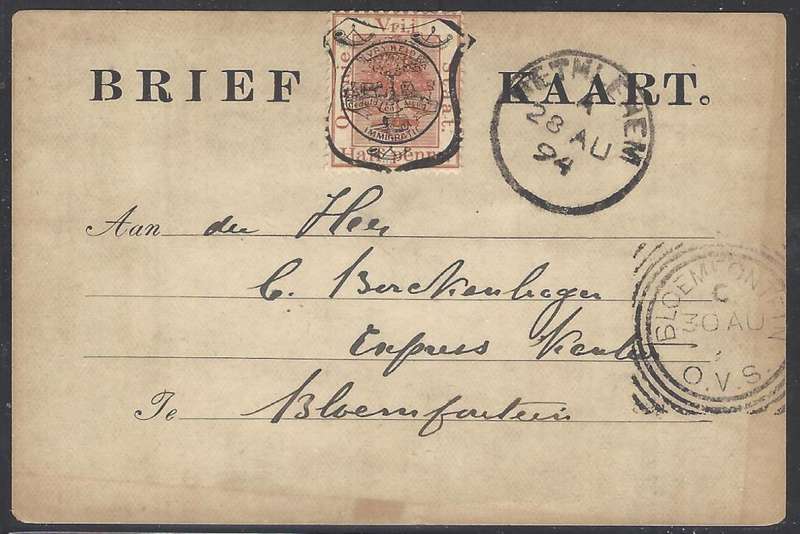 BRIEF KAART.
Oranje Vrij Staat.
VRYHEID
IMMIGRATIE
Half penny
BETHLEHEM
A
28 AU
94
Aan den Heer
C. Borckenhagen
Express Kantoor
Te Bloemfontein
BLOEMFONTEIN
C
30 AU
O.V.S.